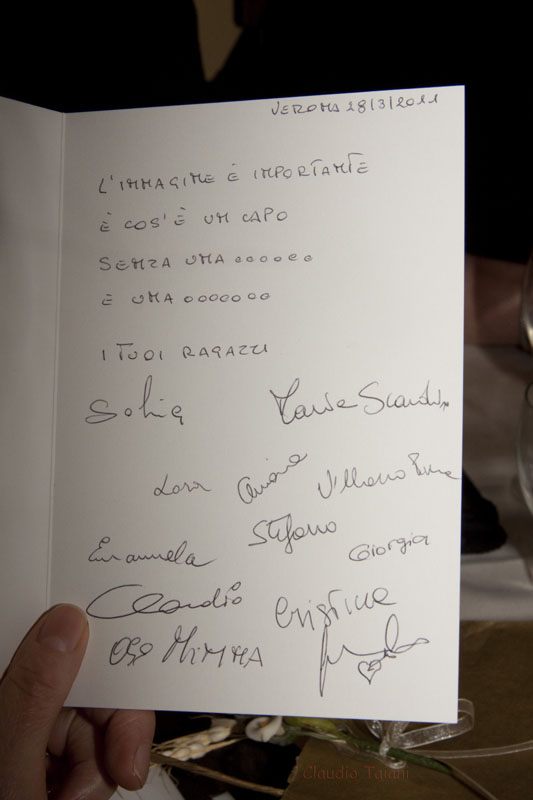 VERONA 28/3/2011
L'IMMAGINE È IMPORTANTE
È COS'È UN CAPO
SENZA UNA oooooo
E UNA ooooooo
I TUOI RAGAZZI
Sofia Maria
Lara Villano
Emanuela Stefano Giorgia
Claudio Cristina
MIMMA
Claudio Taiani